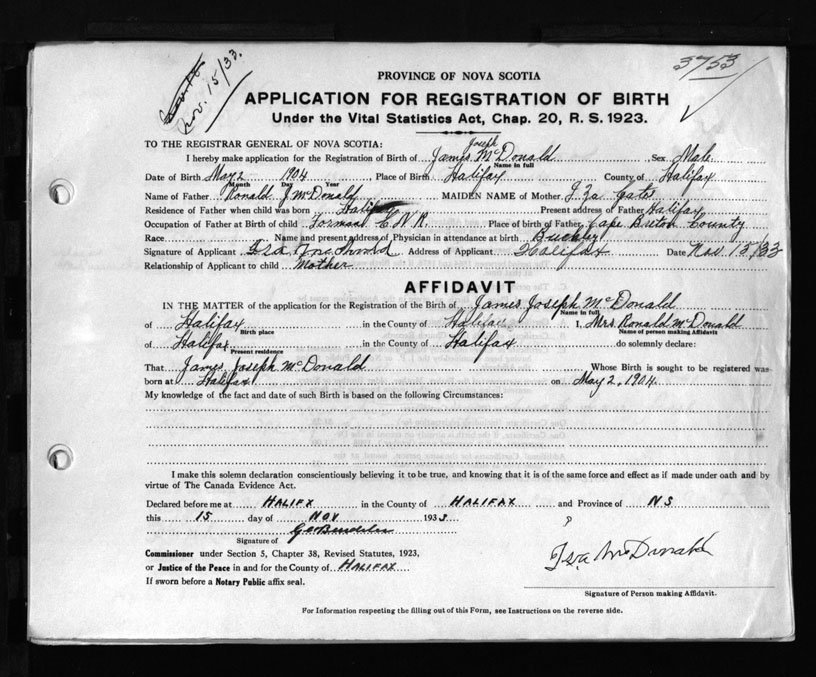 Nov. 15/33.
3753
PROVINCE OF NOVA SCOTIA
APPLICATION FOR REGISTRATION OF BIRTH
Under the Vital Statistics Act, Chap. 20, R. S. 1923.
TO THE REGISTRAR GENERAL OF NOVA SCOTIA:
Joseph
I hereby make application for the Registration of Birth of James McDonald Sex Male
Name in full
Date of Birth May 2 1904 Place of Birth Halifax County of Halifax
Month Day Year
Name of Father Ronald J McDonald MAIDEN NAME of Mother
Residence of Father when child was born Halifax Present address of Father Halifax
Occupation of Father at Birth of child Forman C.N.R. Place of birth of Father Cape Breton County
Race Name and present address of Physician in attendance at birth Buckley
Signature of Applicant McDonald Address of Applicant Halifax Date Nov 15/33
Relationship of Applicant to child Mother
AFFIDAVIT
IN THE MATTER of the application for the Registration of the Birth of James Joseph McDonald
Name in full
of Halifax in the County of Halifax I, Mrs. Ronald McDonald
Birth place Name of person making Affidavit
of Halifax in the County of Halifax do solemnly declare:
Present residence
That James Joseph McDonald Whose Birth is sought to be registered was
born at Halifax on May 2, 1904.
My knowledge of the fact and date of such Birth is based on the following Circumstances:
I make this solemn declaration conscientiously believing it to be true, and knowing that it is of the same force and effect as if made under oath and by
virtue of The Canada Evidence Act.
Declared before me at HALIFX in the County of HALIFAX and Province of NS
this 15 day of NOV 1933
Signature of
Commissioner under Section 5, Chapter 38, Revised Statutes, 1923,
or Justice of the Peace in and for the County of HALIFAX
If sworn before a Notary Public affix seal.
McDonald
Signature of Person making Affidavit.
For Information respecting the filling out of this Form, see Instructions on the reverse side.